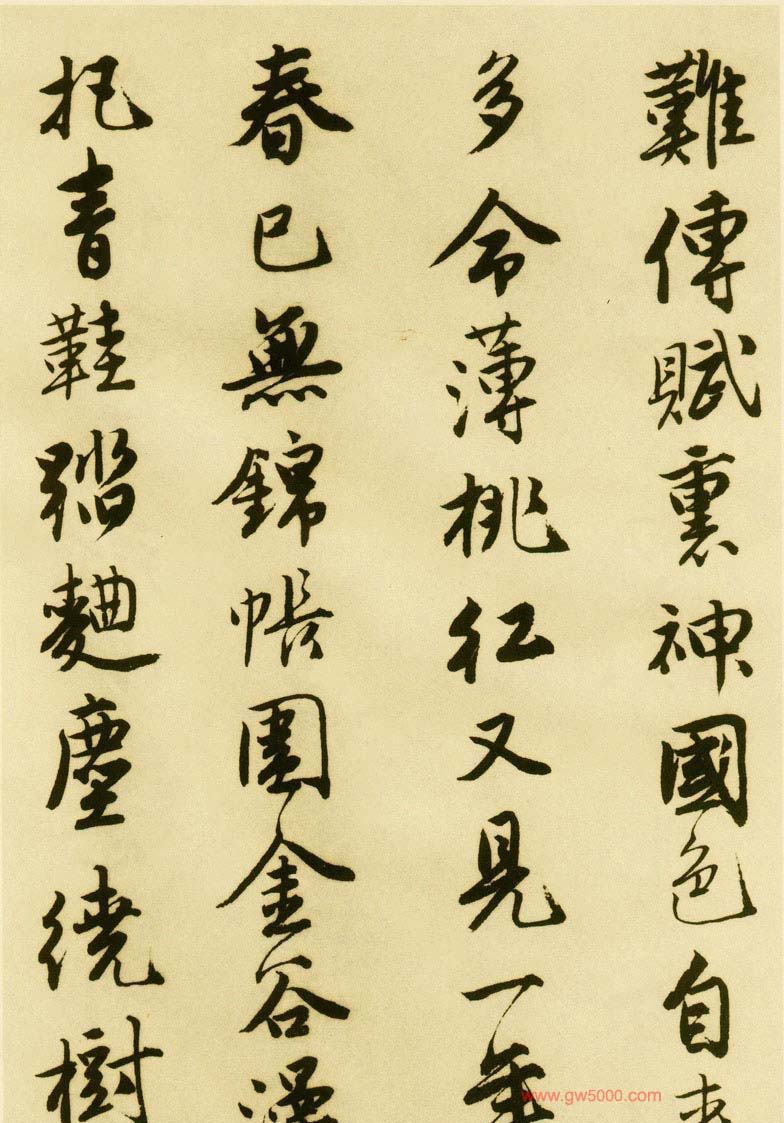 難傳賦裏神國色自
多命薄桃紅又見一年
春已無錦帳圍金谷漫
把青鞋踏麴塵繞樹
www.gw5000.com